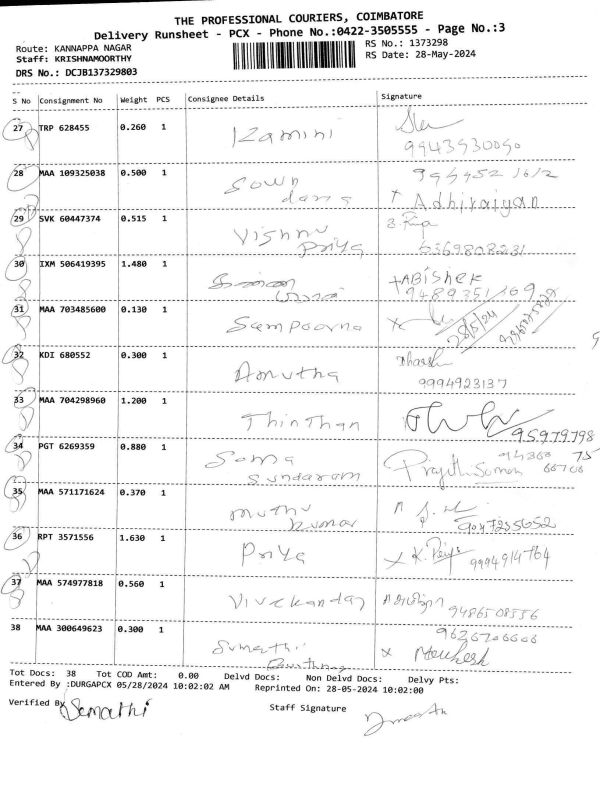 THE PROFESSIONAL COURIERS, COIMBATORE
Delivery Runsheet - PCX - Phone No.:0422-3505555 - Page No.:3
Route: KANNAPPA NAGAR RS No.: 1373298
Staff: KRISHNAMOORTHY RS Date: 28-May-2024
DRS No.: DCJB137329803
S No Consignment No Weight PCS Consignee Details Signature
27 TRP 628455 0.260 1 Kamini
9943930090
28 MAA 109325038 0.500 1 Sown
dara Adhiraiyan
29 SVK 60447374 0.515 1 Vishnu
Priya 6369808231
30 IXM 506419395 1.480 1 ABishek
9489351109
31 MAA 703485600 0.130 1 Sampoorna 28/5/24
32 KDI 680552 0.300 1 Amutha
9994923137
33 MAA 704298960 1.200 1 Thinthan
95979798
34 PGT 6269359 0.880 1 Soma 75
Sundaram
35 MAA 571171624 0.370 1 muthu
kumar 9047255652
36 RPT 3571556 1.630 1 Priya K. Priya 9994914764
37 MAA 574977818 0.560 1 Vivekandan
9486508556
38 MAA 300649623 0.300 1 Sumathi
Moukesh
Tot Docs: 38 Tot COD Amt: 0.00 Delvd Docs: Non Delvd Docs: Delvy Pts:
Entered By :DURGAPCX 05/28/2024 10:02:02 AM Reprinted On: 28-05-2024 10:02:00
Verified By Semathi Staff Signature